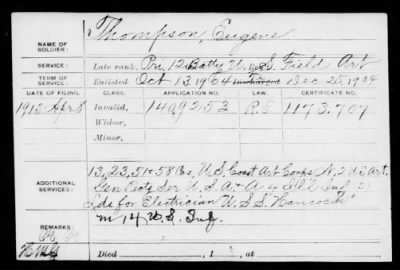 Thompson, Eugene
NAME OF SOLDIER:
SERVICE: Late rank, Pri, 12 Batty U.S. Field Art
TERM OF SERVICE: Enlisted Oct 13 1904 Discharged Dec 25, 1904
DATE OF FILING. CLASS. APPLICATION NO. LAW. CERTIFICATE NO.
1913 Apr 8 Invalid, 1409253 1173.707
Widow,
Minor,
ADDITIONAL SERVICES: 13, 23, 51 & 58 Co, U.S. Coast Art Corps N, 2 U.S. Art.
Gen Ser U.S.A. & A 4 Ills Inf
for Electrician U.S.S. "Hancock"
M 14 U.S. Inf.
REMARKS:
Died , 1 , at